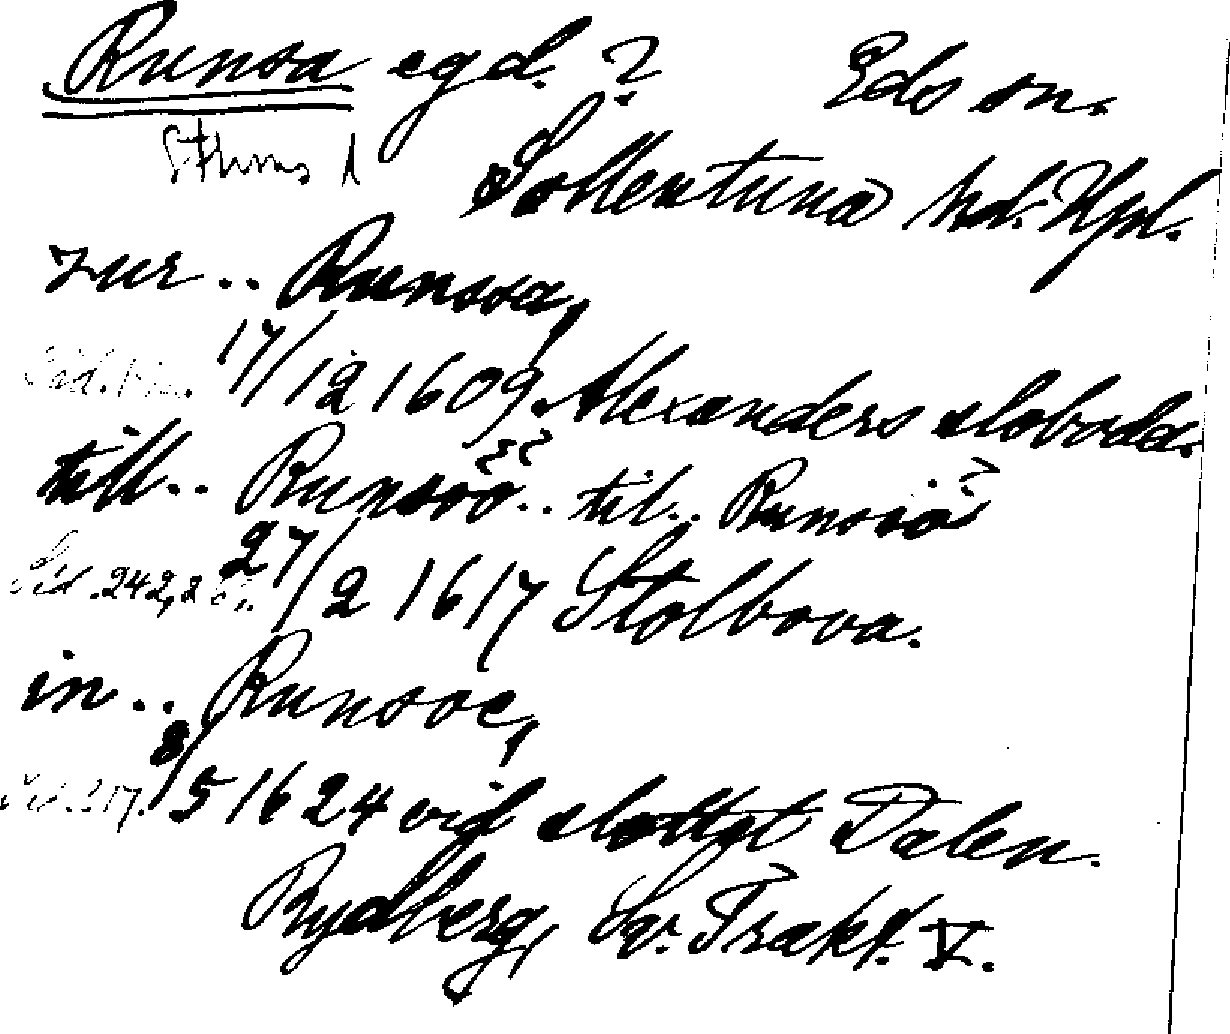 Runsa egd. ? Eds sn.
Sthms l Sollentuna hd. Upl.
zur .. Runssa,
17/12 1609. Alexanders sloboda.
till .. Runsöö .. til .. Runsiö
Sid. 242, 27/2 1617 Stolbova.
in .. Runsoe,
8/5 1624 vid slottet Dalen.
Rydberg, Sv. Trakt. V.